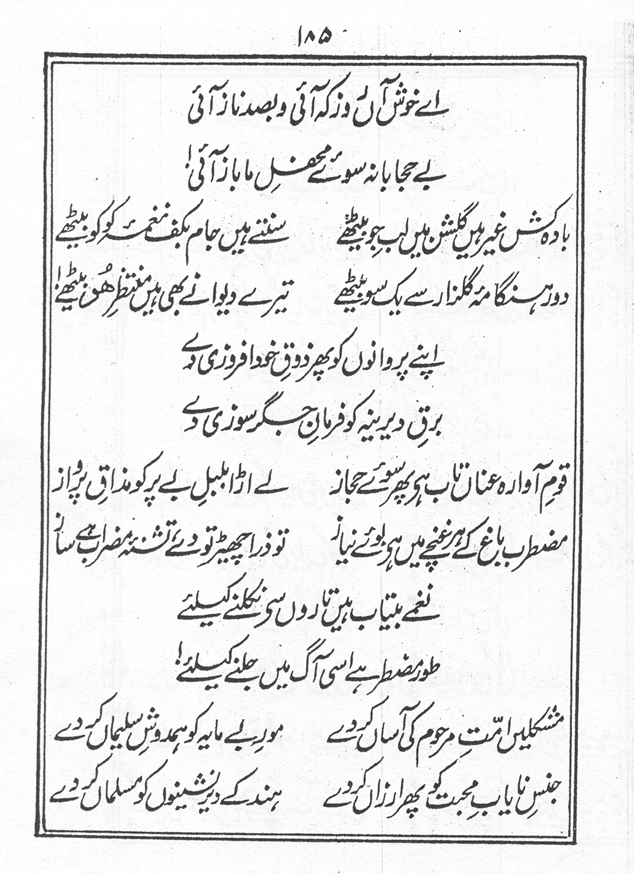 ۱۸۵
اے خوش آں روز کہ آئی و بصد ناز آئی
بے حجابانہ سوئے محفلِ ما باز آئی!
بادہ کش غیر ہیں گلشن میں لبِ جو بیٹھے سنتے ہیں جام بکف نغمۂ کوکو بیٹھے
دور ہنگامۂ گلزار سے یک سو بیٹھے تیرے دیوانے بھی ہیں منتظرِ ھُو بیٹھے!
اپنے پروانوں کو پھر ذوقِ خود افروزی دے
برقِ دیرینہ کو فرمانِ جگر سوزی دے
قومِ آوارہ عناں تاب ہی پھر سوئے حجاز لے اڑا بلبلِ بے پر کو مذاقِ پرواز
مضطرب باغ کے ہر غنچے میں ہی بوئے نیاز تو ذرا چھیڑ تو دے، تشنۂ مضراب ہے ساز
نغمے بیتاب ہیں تاروں سی نکلنے کیلئے
طور مضطر ہے اسی آگ میں جلنے کیلئے!
مشکلیں امّتِ مرحوم کی آساں کر دے مورِ بے مایہ کو ہمدوشِ سلیماں کر دے
جنسِ نایابِ محبت کو پھر ارزاں کر دے ہند کے دیر نشینوں کو مسلماں کر دے